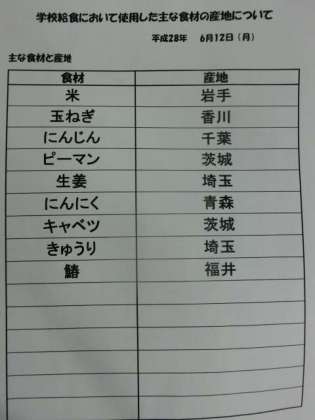 学校給食において使用した主な食材の産地について
平成28年 6月12日(月)
主な食材と産地
食材 産地
米 岩手
玉ねぎ 香川
にんじん 千葉
ピーマン 茨城
生姜 埼玉
にんにく 青森
キャベツ 茨城
きゅうり 埼玉
鰆 福井